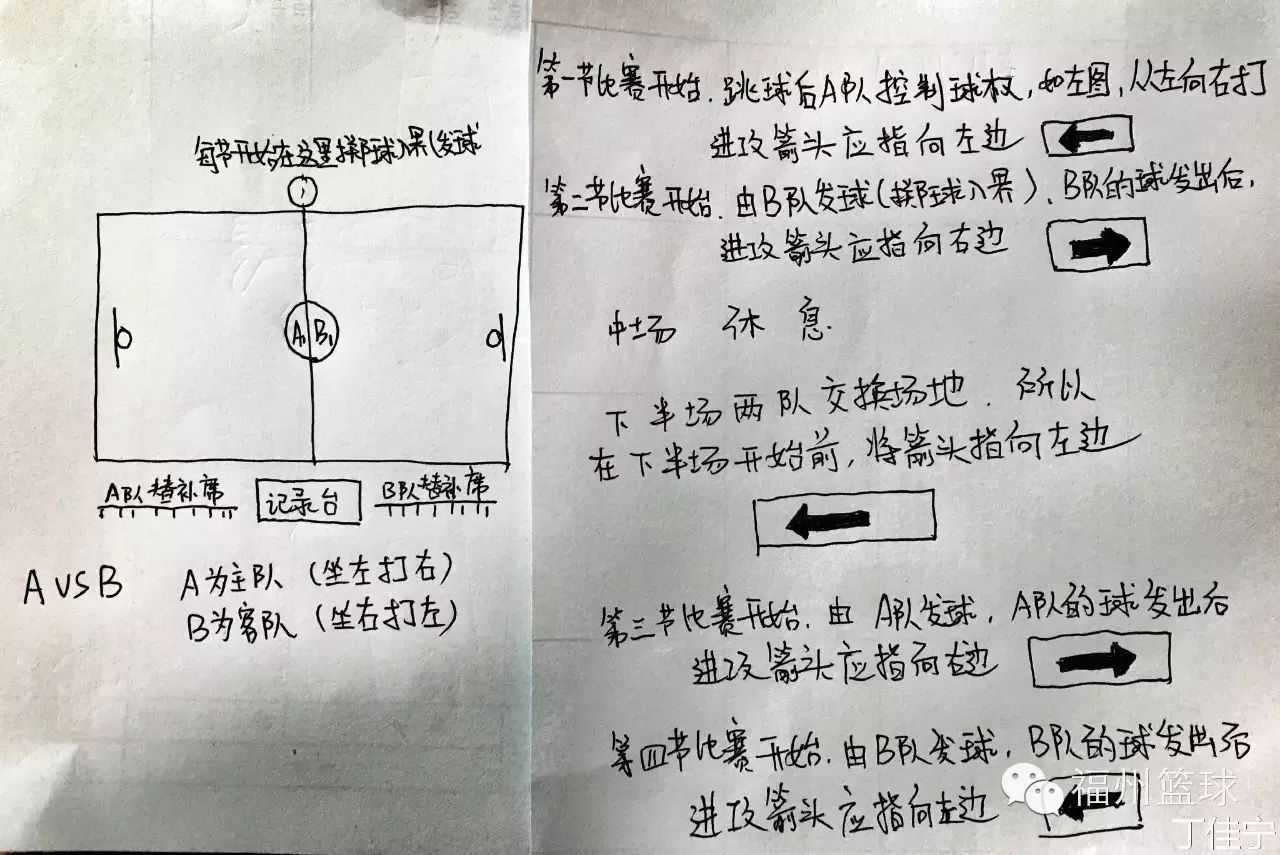 每节开始在这里掷球入界(发球
A1 B1
A队替补席
记录台
B队替补席
A VS B
A为主队 (坐左打右)
B为客队 (坐右打左)
第一节比赛开始.跳球后A队控制球权,如左图,从左向右打
进攻箭头应指向左边
第二节比赛开始.由B队发球(掷球入界)、B队的球发出后,
进攻箭头应指向右边
中场 休息.
下半场两队交换场地.所以
在下半场开始前,将箭头指向左边
第三节比赛开始.由A队发球,A队的球发出后
进攻箭头应指向右边
第四节比赛开始.由B队发球,B队的球发出后
进攻箭头应指向左边
福州篮球
丁佳宁